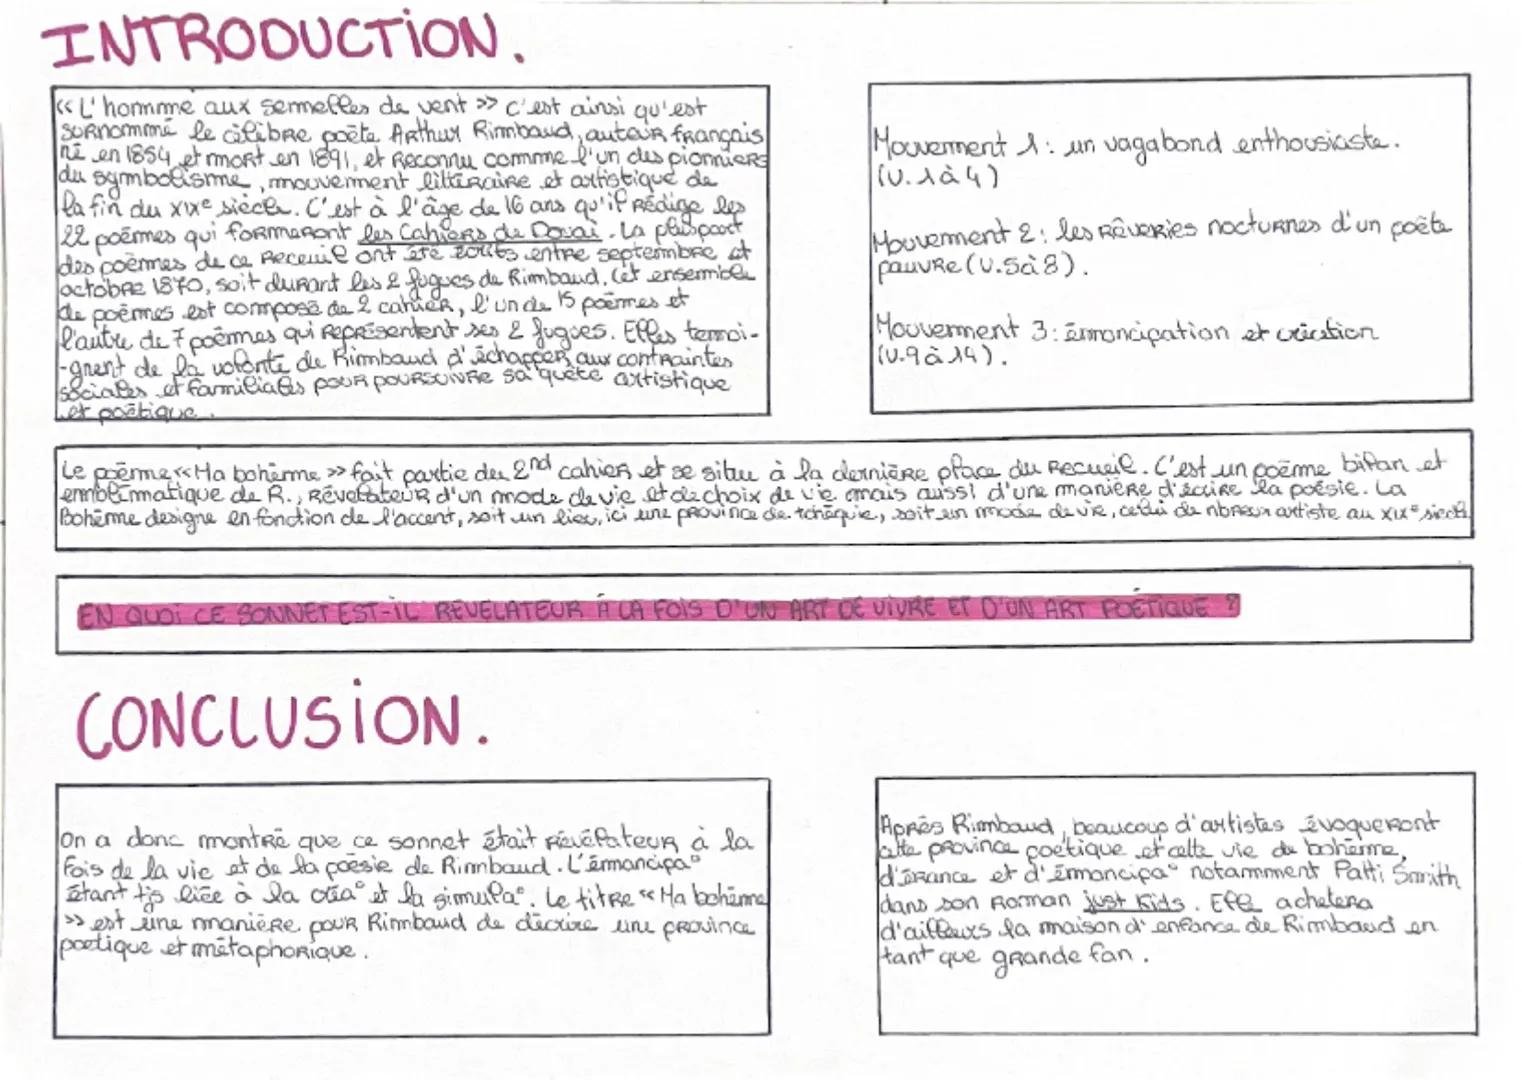 INTRODUCTION.
<< L'homme aux semelles de vent >> c'est ainsi qu'est
surnommé le célèbre poète Arthur Rimbaud, auteur français
né en 1854 et mort en 1891, et reconnu comme l'un des pionniers
du symbolisme, mouvement littéraire et artistique de
la fin du XIXe siècle. C'est à l'âge de 16 ans qu'il rédige les
22 poèmes qui formeront les Cahiers de Douai. La pluspart
des poèmes de ce receuil ont été écrits entre septembre et
octobre 1870, soit durant les 2 fugues de Rimbaud. Cet ensemble
de poèmes est composé de 2 cahier, l'un de 15 poèmes et
l'autre de 7 poèmes qui représentent ses 2 fugues. Elles temoi-
-gnent de la volonté de Rimbaud d'échapper aux contraintes
sociales et familiales pour poursuivre sa quête artistique
et poétique.
Mouvement 1: un vagabond enthousiaste.
(v.1à4)
Mouvement 2: les rêveries nocturnes d'un poète
pauvre (v.5à8).
Mouvement 3: émancipation et création
(v.9à14).
Le poème << Ma bohème >> fait partie du 2nd cahier et se situe à la dernière place du recueil. C'est un poème bilan et
emblèmatique de R., révélateur d'un mode de vie et de choix de vie mais aussi d'une manière d'écrire la poésie. La
Bohème designe en fonction de l'accent, soit un lieu, ici une province de tchéquie, soit un mode de vie, celui de nbreux artiste au XIXe siècle
EN QUOI CE SONNET EST-IL RÉVÉLATEUR À LA FOIS D'UN ART DE VIVRE ET D'UN ART POÉTIQUE ?
CONCLUSION.
On a donc montré que ce sonnet était révélateur à la
fois de la vie et de la poésie de Rimbaud. L'émancipa°
étant tjs liée à la créa° et la simula°. Le titre << Ma bohème
>> est une manière pour Rimbaud de décrire une province
poétique et métaphorique.
Après Rimbaud, beaucoup d'artistes évoqueront
cette province poétique et cette vie de bohème,
d'érance et d'émancipa° notamment Patti Smith
dans son roman Just Kids. Elle achetera
d'ailleurs la maison d'enfance de Rimbaud en
tant que grande fan.